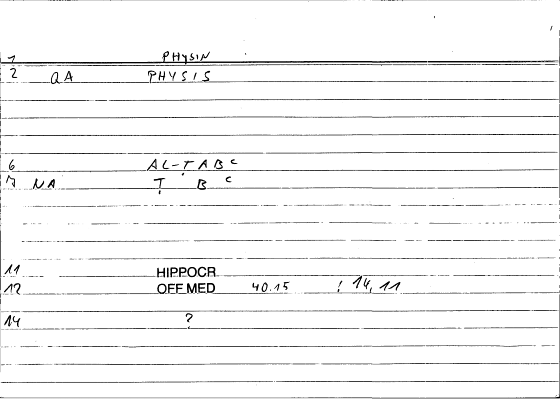 1 PHYSIN
2 QA PHYSIS
6 AL-ṬABᶜ
7 NA Ṭ B ᶜ
11 HIPPOCR
12 OFF MED 40.15 ! 14, 11
14 ?